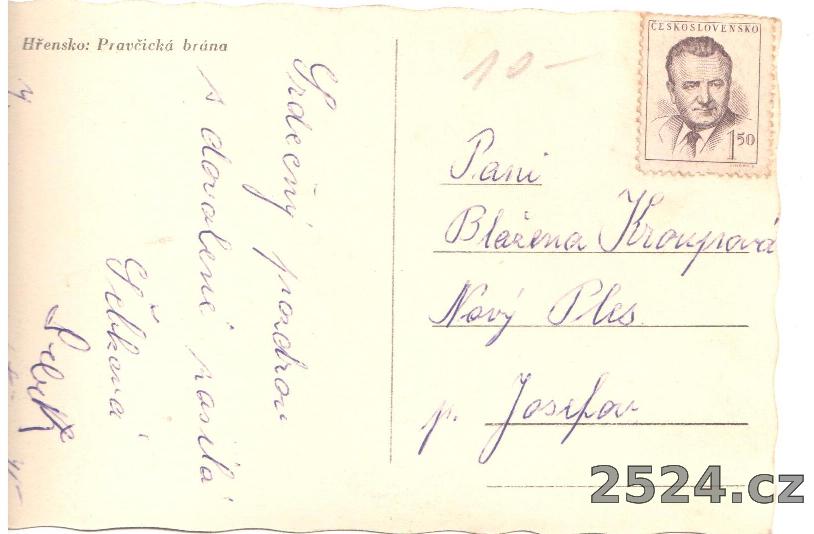 Hřensko: Pravčická brána
Srdečný pozdrav
s dovolené posílá
ČESKOSLOVENSKO
1 50
10 –
Paní
Blažena Kroupová
Nový Ples
p. Josefov
2524.cz